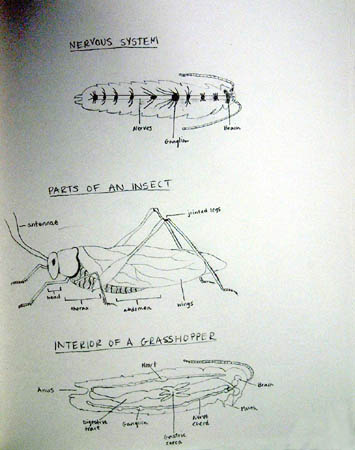 NERVOUS SYSTEM
Nerves
Ganglion
Brain
PARTS OF AN INSECT
antennae
jointed legs
head
thorax
abdomen
wings
INTERIOR OF A GRASSHOPPER
Heart
Brain
Anus
Mouth
Digestive
tract
Ganglia
Nerve
chord
Gastric
caeca